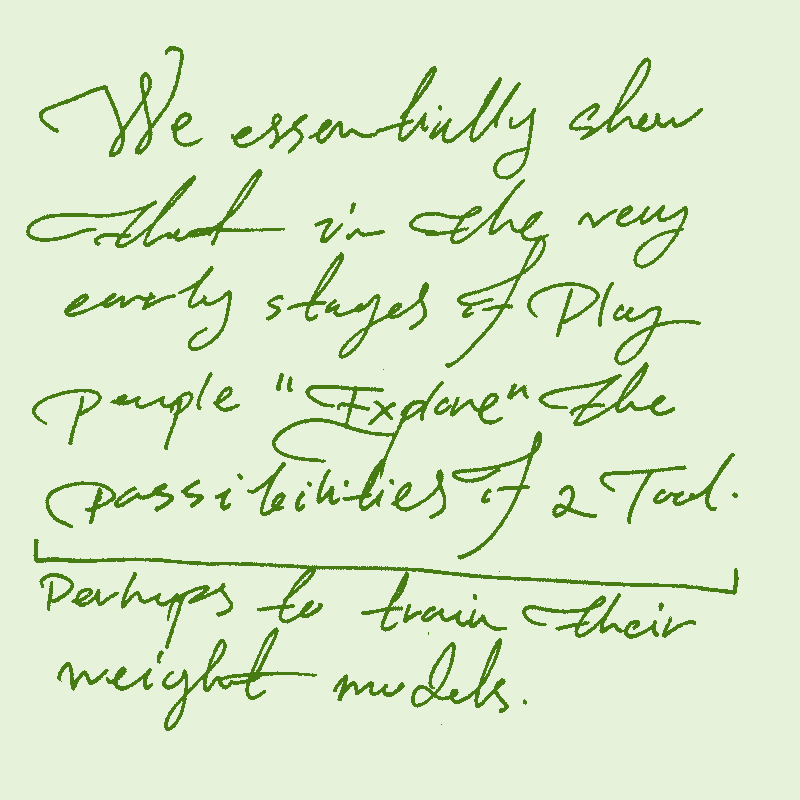 We essentially show
that in the very
early stages of Play
people "Explore" the
possibilities of a Tool.
Perhaps to train their
weight models.